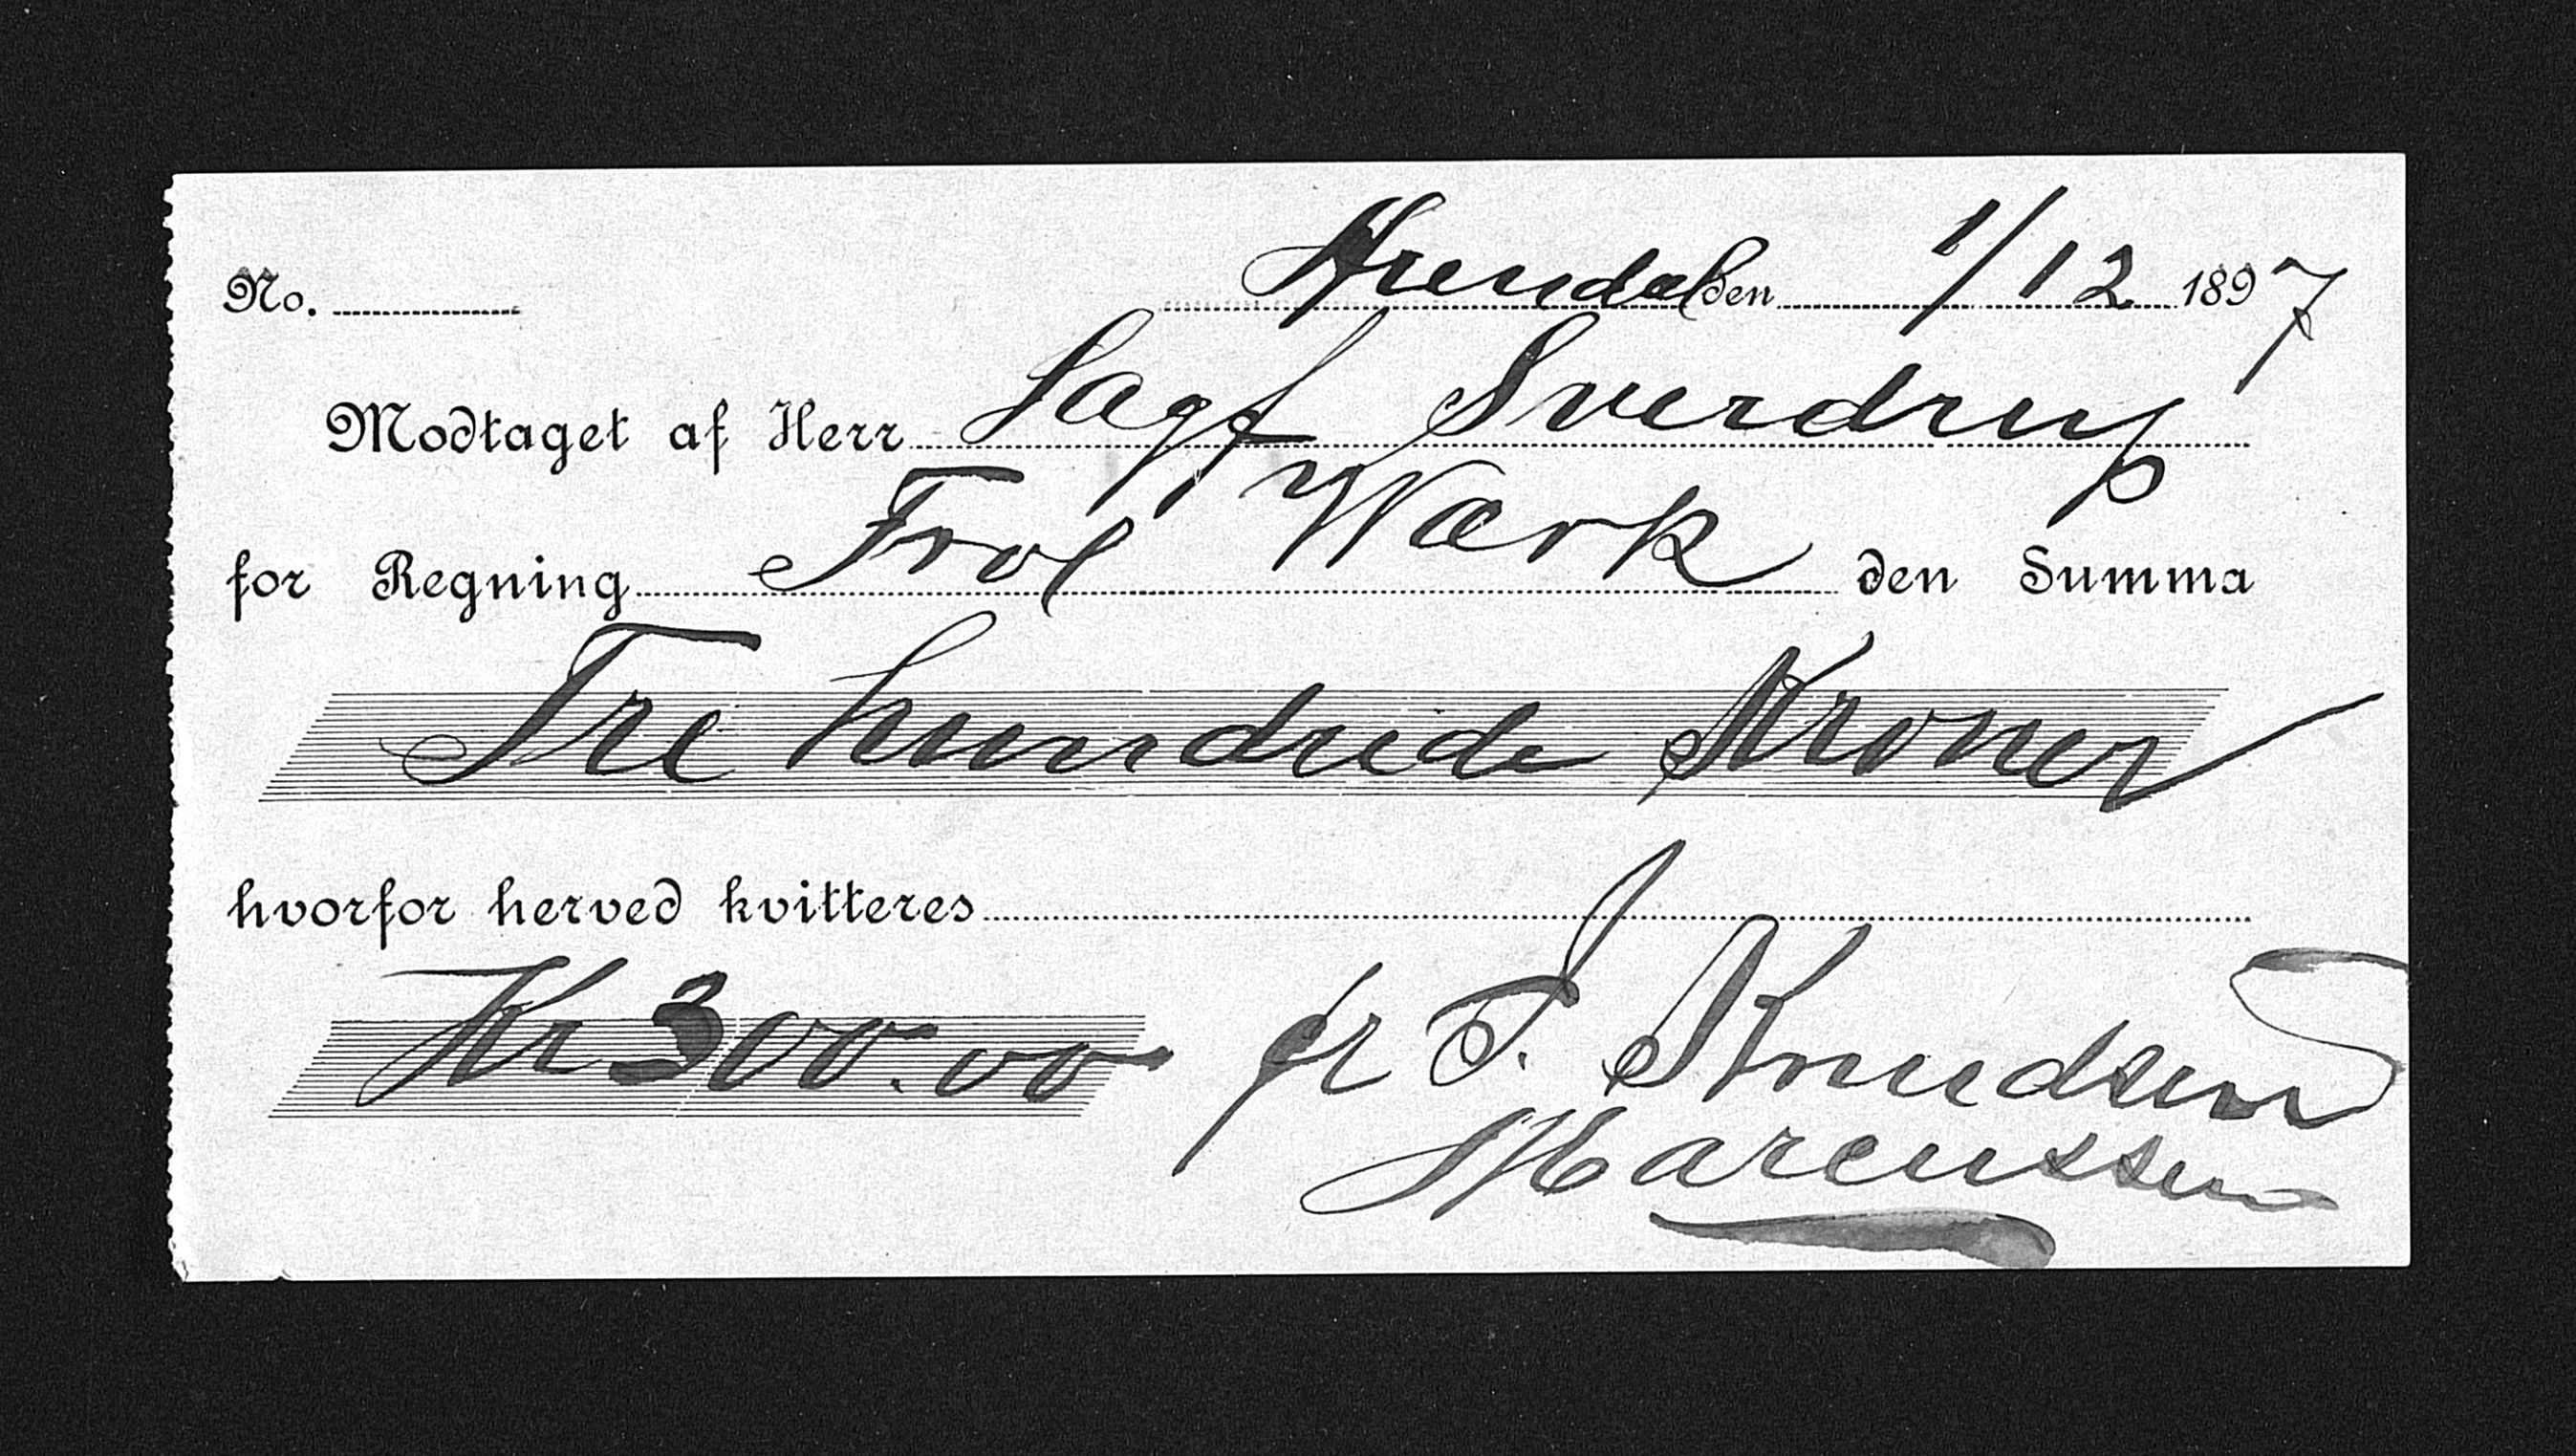 No. Arendal den 1/12 1897
Modtaget af Herr Sagf Sverdrup
for Regning Frol Værk den Summa
Tre hundrede Kroner
hvorfor herved kvitteres
Kr 300.00 pr J. Knudsen
Marcussen